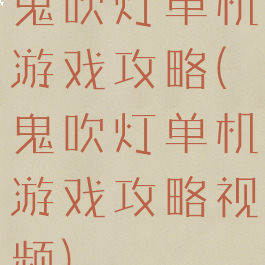 鬼吹灯单机
游戏攻略(
鬼吹灯单机
游戏攻略视
频)